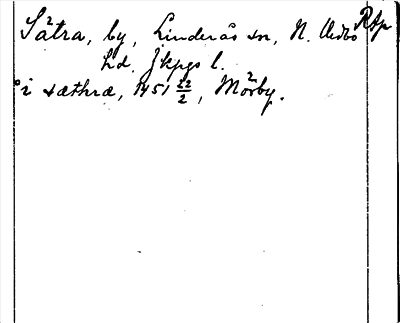 Sätra, by, Linderås sn, N. Vedbo Rap
hd. Jkpgs l.
i sæthræ, 1451 22/2, Mörby.